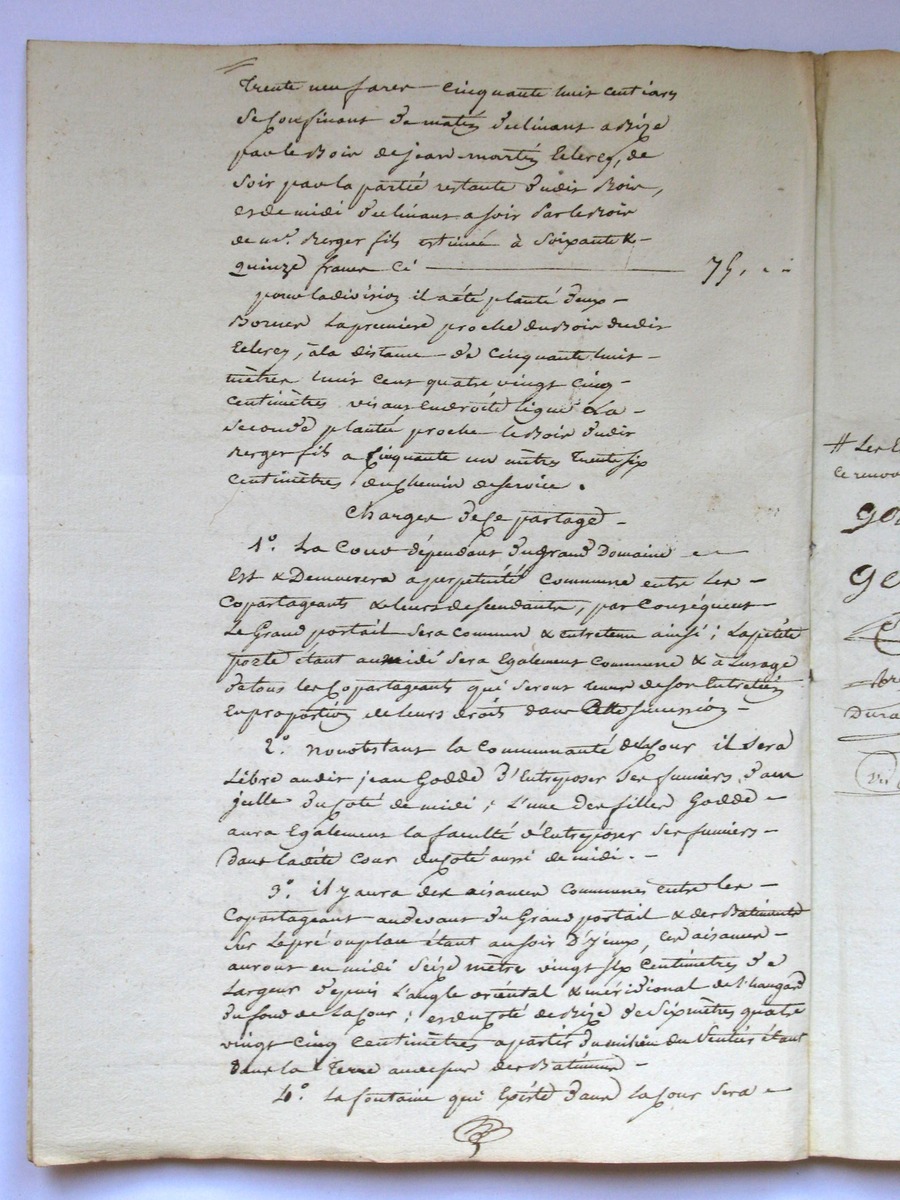 trente neuf ares cinquante huit centiars
se confinant de matin declinant a Bize
par le Bois de jean-martin Leclercq, de
soir par la partie restante dudit Bois,
et de midi declinant a soir Par le Bois
de mr. Berger fils estimée à Soixante &
quinze francs Ci — 75, " "
pour la division il a été planté deux
Bornes La premiere proche du Bois dudit
Leclercq, à la distance de Cinquante huit
mètres huit cent quatre vingt cinq
Centimètres visant en droite ligne La
seconde planté proche le Bois dudit
Berger fils a Cinquante un mètres trente six
centimètres du Chemin de service.
Charges de Ce partage
1°. La Cour dépendant du grand Domaine
Est & Demeurera à perpetuité Commune entre Les
Copartageants & leurs descendants, par Conséquent
Le Grand portail sera Commun & entretenu ainsi ; La petite
porte étant au midi sera Egalement Commune & à L'usage
de tous les Copartageants qui seront tenus de son Entretien
En proportion de leurs droits dans Cette succession
2°. nonobstant la Communauté de La Cour il sera
Libre audit jean Godde d'Entreposer ses fumiers dans
Icelle du Coté de midi ; L'une des filles Godde
aura Egalement la faculté d'Entreposer ses fumiers
Dans ladite Cour du Coté aussi de midi.
3°. il y aura des aisances Communes entre les
Copartageant au devant du Grand portail & des Batiments
sur Le pré ou place étant au soir D'yceux, Ces aisances
auront en midi seize mètre vingt six Centimètres de
Largeur depuis L'angle oriental & méridional de l'hangard
du fond de La Cour ; et du Coté de Bize de six mètres quatre
vingt Cinq Centimètres a partir du milieu du Sentier étant
dans la Terre au dessus des Batiments
4°. La fontaine qui Existe dans La Cour sera
# Les
Ce renvoi